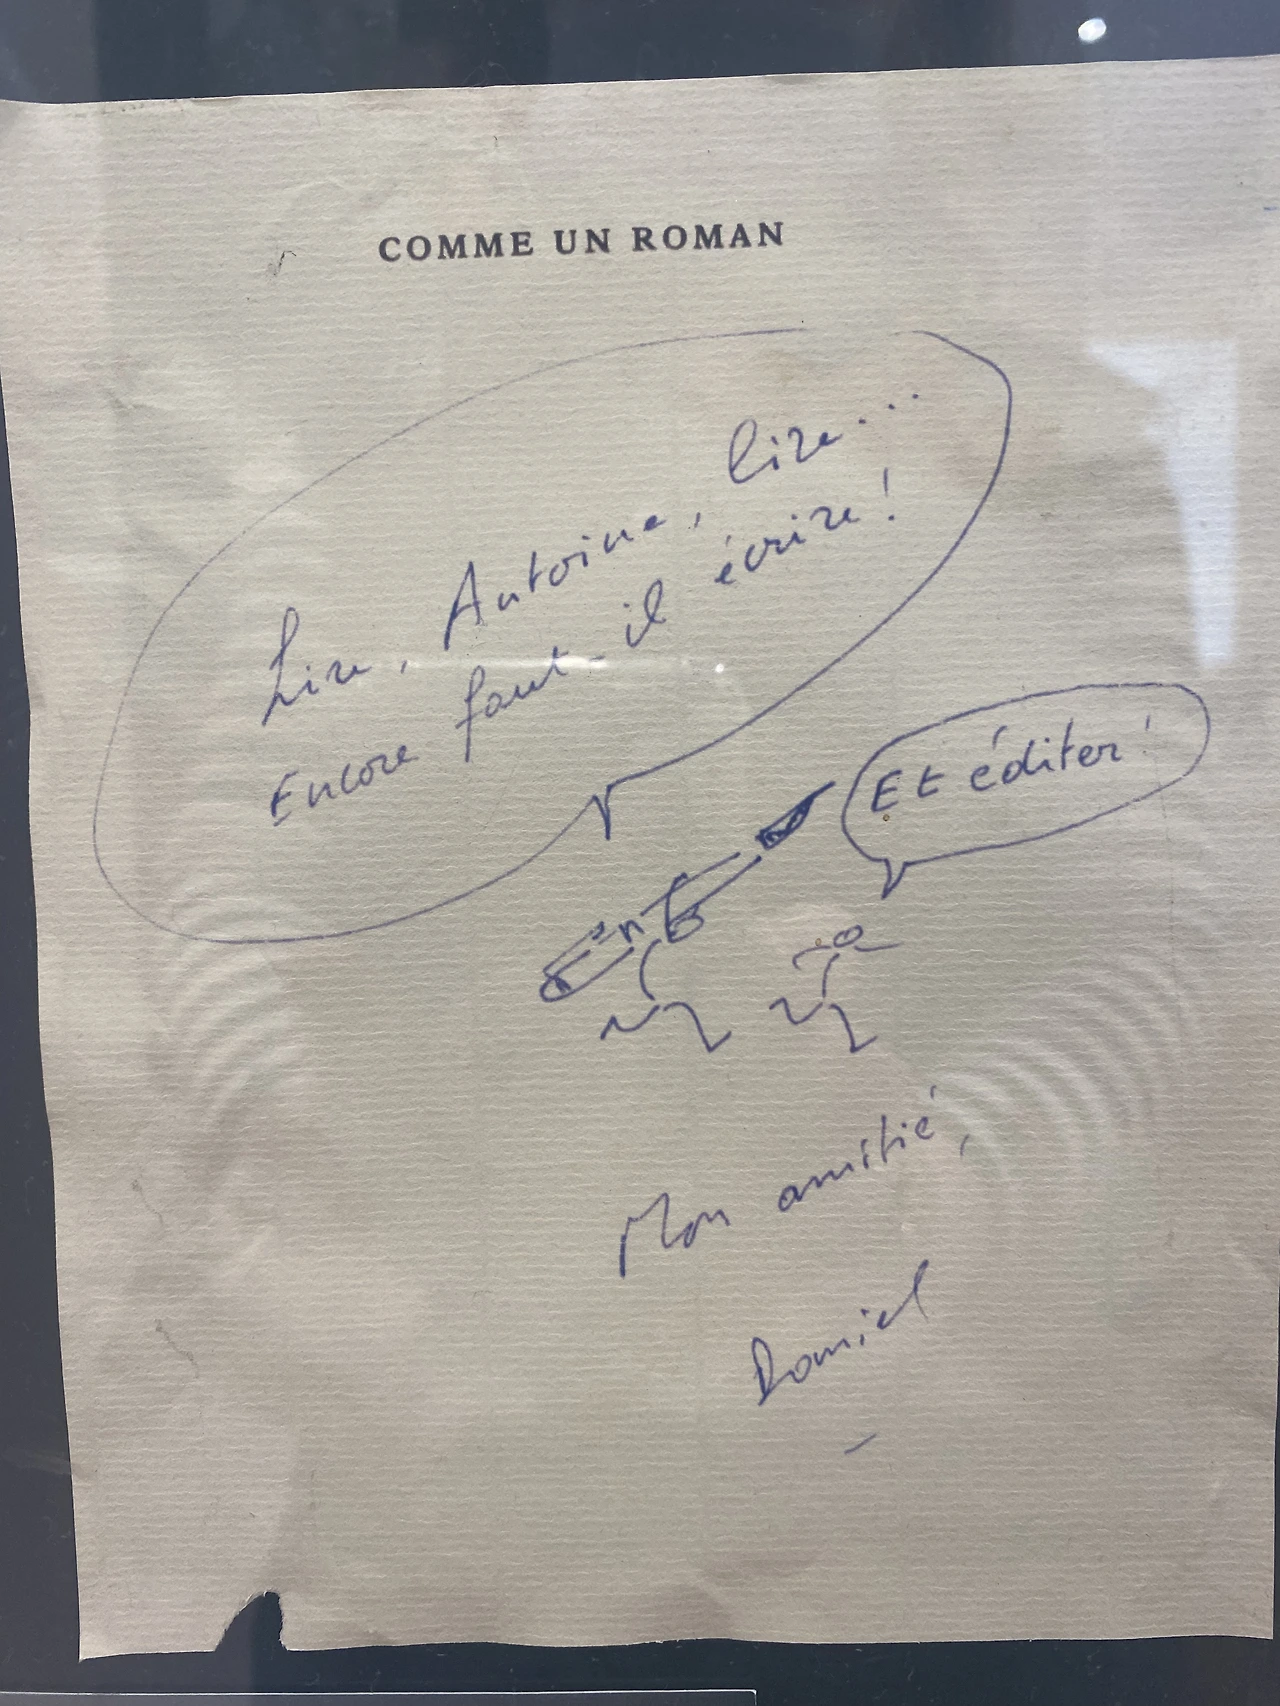 COMME UN ROMAN
Lire, Antoine, lire...
Encore faut-il écrire!
Et éditer!
Mon amitié,
Daniel